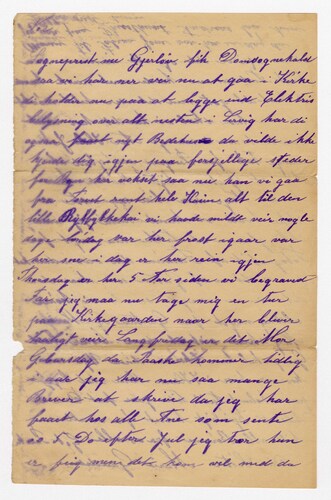 sogneprest nu Gjerløw fik Domsognekald
saa vi har nær vei nu at gaa i Kirke
di holder nu paa at legge ind Elektris
belysning over alt nestén i Levig har di
og faaet nyt Bedehus du vilde ikke
kjende dig igjen paa forsjellige steder
for Byen her vekset saa nu kan vi gaa
fra Torvet rundt hele Kaien alt til den
lille vi havde mildt veir nogle
dage Lørdag var her frost igaar var
her sne i dag er her rein igjen
Thorsdag er her 5 Aar siden vi begravd
Far jeg maa nu tage mig en tur
paa Kirkegaarden naar her bliver
veir Langfredag er dit Mor
Geburtsdag da Paaske kommer tidlig
i aar jeg har nu saa mange
Brever at skrive da jeg har
faaet hos alle som sente
Do efter Jul jeg tror hun
er det vil med du